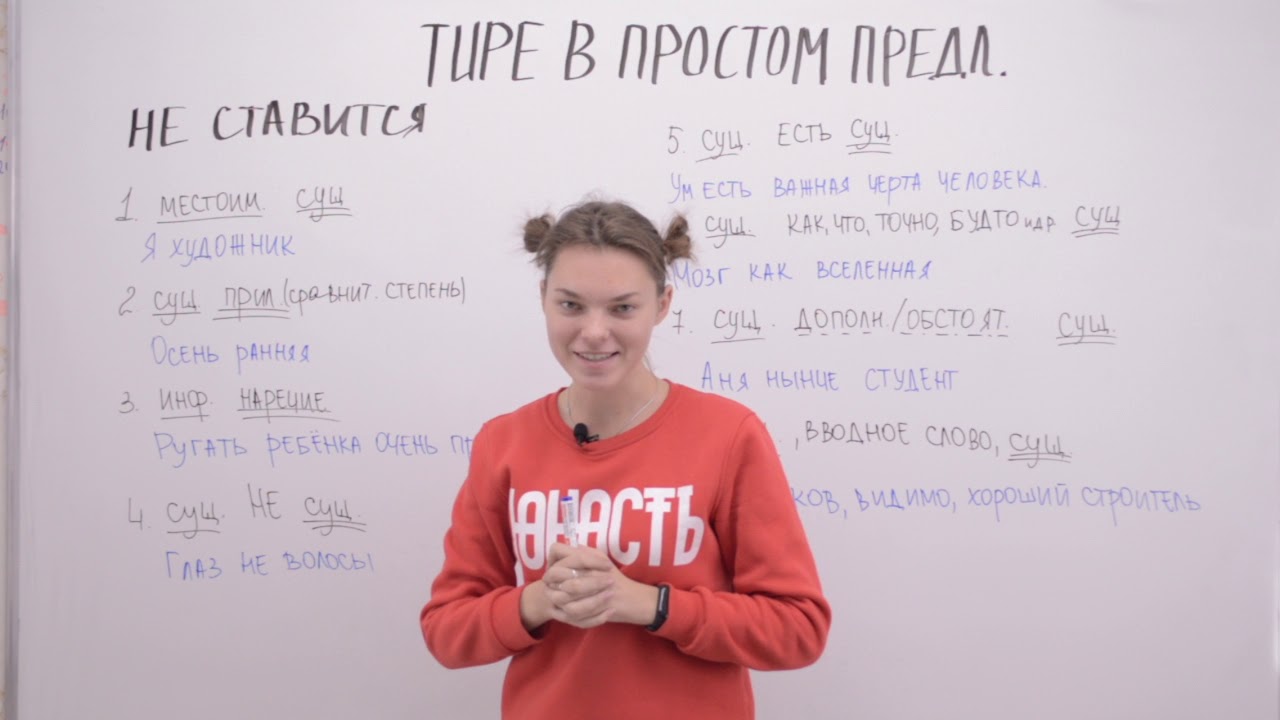 ТИРЕ В ПРОСТОМ ПРЕДЛ.
НЕ СТАВИТСЯ
1. МЕСТОИМ. СУЩ
Я ХУДОЖНИК
2 СУЩ ПРИЛ. (СРАВНИТ. СТЕПЕНЬ)
ОСЕНЬ РАННЯЯ
3. ИНФ. НАРЕЧИЕ.
РУГАТЬ РЕБЁНКА ОЧЕНЬ
4. СУЩ. НЕ СУЩ.
ГЛАЗ НЕ ВОЛОСЫ
5. СУЩ. ЕСТЬ СУЩ.
УМ ЕСТЬ ВАЖНАЯ ЧЕРТА ЧЕЛОВЕКА.
СУЩ. КАК, ЧТО, ТОЧНО, БУДТО И ДР. СУЩ
МОЗГ КАК ВСЕЛЕННАЯ
7. СУЩ. ДОПОЛН./ОБСТОЯТ. СУЩ.
АНЯ НЫНЧЕ СТУДЕНТ
, ВВОДНОЕ СЛОВО, СУЩ.
КОВ, ВИДИМО, ХОРОШИЙ СТРОИТЕЛЬ
ЮНОСТЬ